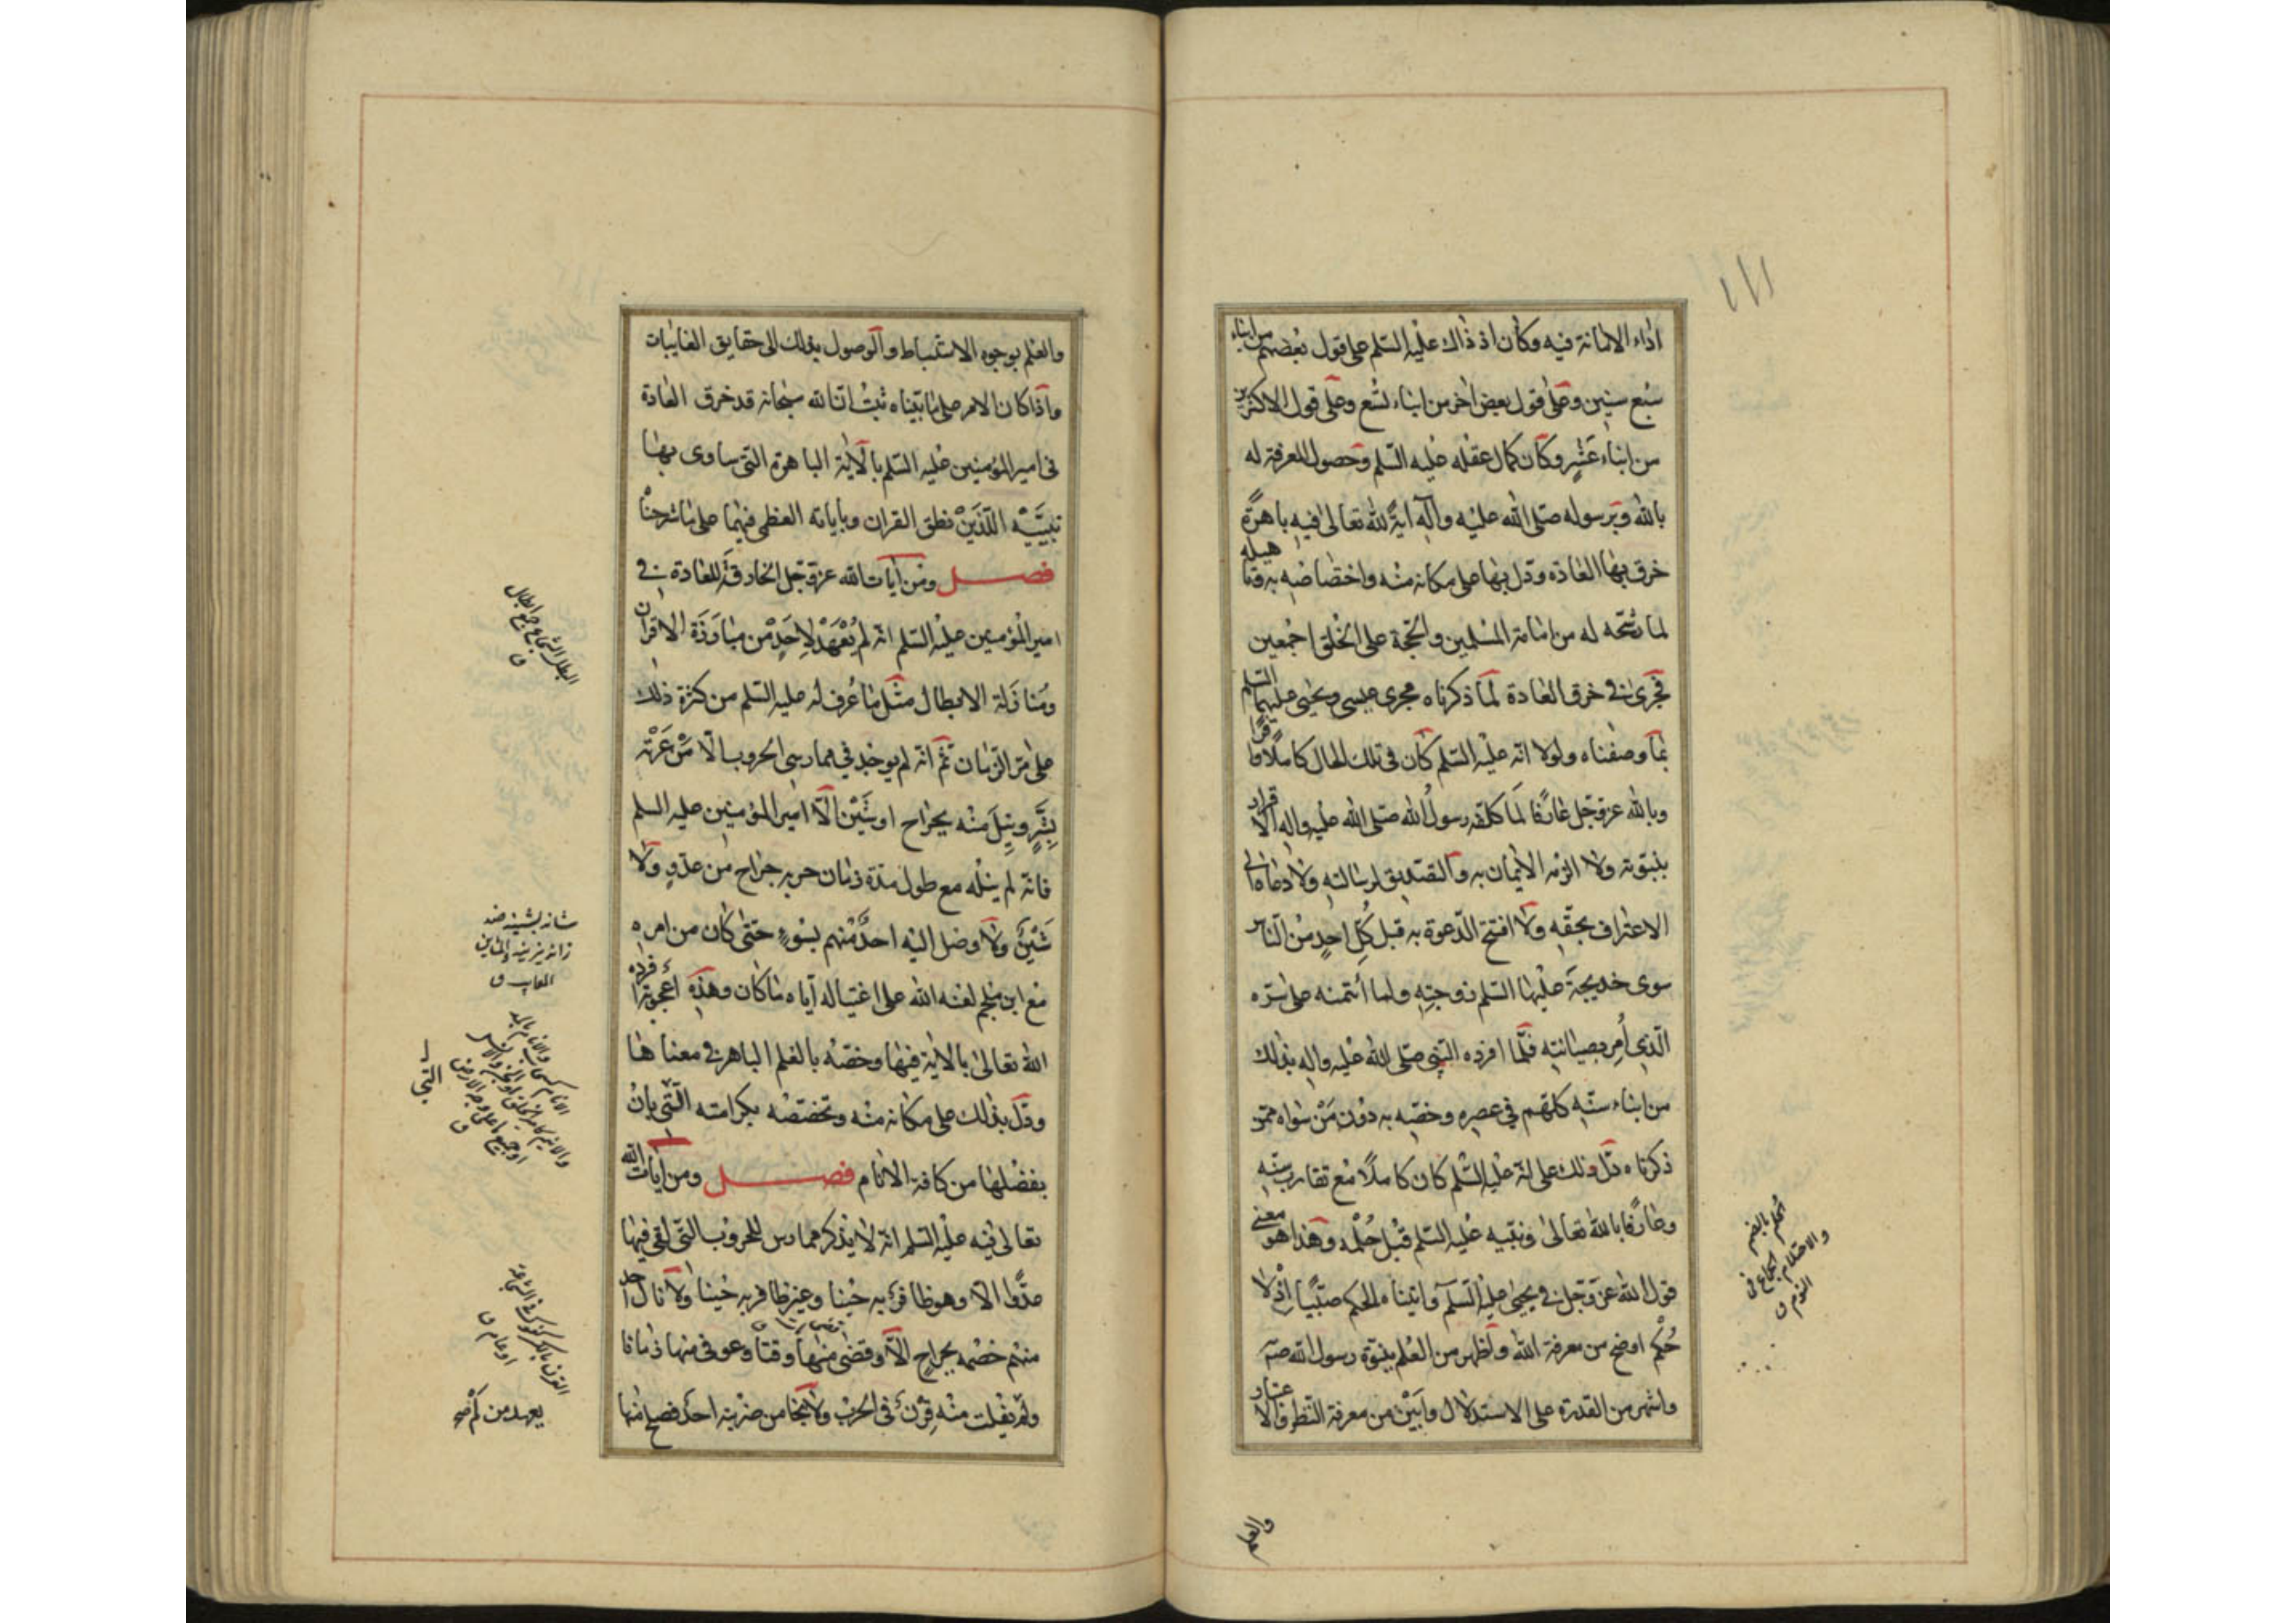 اداء الامانة فيه وكان اذ ذاك عليه السلم على قول بعضهم من ابناء
سبع سنين وعلى قول بعض اخر من ابناء تسع وعلى قول الاكثرين
من ابناء عشر وكان كمال عقله عليه السلم وحصول المعرفة له
بالله وبرسوله صلى الله عليه واله اية لله تعالى فيه باهرة
خرق بها العادة ودل بها على مكانه منه واختصاصه به وتاهيله
لما رشحه له من امامة المسلمين والحجة على الخلق اجمعين
فجرى في خرق العادة لما ذكرناه مجرى عيسى ويحيى عليهما السلم
بما وصفناه ولولا انه عليه السلم كان في تلك الحال كاملا وافرا
وبالله عز وجل عارفا لما كلفه رسول الله صلى الله عليه واله الاقرار
بنبوته ولا الزمه الايمان به والتصديق لرسالته ولا دعاه الى
الاعتراف بحقه ولا افتتح الدعوة به قبل كل احد من الناس
سوى خديجة عليها السلم زوجته ولما ائتمنه على سره
الذي امر بصيانته فلما افرده النبي صلى الله عليه واله بذلك
من ابناء سنه كلهم في عصره وخصه به دون من سواه ممن
ذكرناه دل ذلك على انه عليه السلم كان كاملا مع تقارب سنه
وعارفا بالله تعالى ونبيه عليه السلم قبل حلمه وهذا هو معنى
قول الله عز وجل في يحيى عليه السلم واتيناه الحكم صبيا اذ لا
حكم اوضح من معرفة الله واظهر من العلم بنبوة رسول الله صه
واشهر من القدرة على الاستدلال وابين من معرفة النظر والاعتبار
الحلم بالضم
والاحتلام الجماع في
النوم ق
والعلم
والعلم بوجوه الاستنباط والوصول بذلك الى حقايق الغايبات
واذا كان الامر على ما بيناه ثبت ان الله سبحانه قد خرق العادة
في امير المؤمنين عليه السلم بالاية الباهرة التي ساوى بها
نبييه اللذين نطق القران وباياته العظمى فيهما على ما شرحنا
فصل ومن ايات الله عز وجل الخارقة للعادة في
امير المؤمنين عليه السلم انه لم يعهد لاحد من مبارزة الاقران
ومنازلة الابطال مثل ما عرف له عليه السلم من كثرة ذلك
على مر الزمان ثم انه لم يوجد في ممارسي الحروب الا من عرته
بشر ونيل منه بجراح او شين الا امير المؤمنين عليه السلم
فانه لم ينله مع طول مدة زمان حربه جراح من عدو ولا
شين ولا وصل اليه احد منهم بسوء حتى كان من امره
مع ابن ملجم لعنه الله على اغتياله اياه ما كان وهذه اعجوبة افرده
الله تعالى بالاية فيها وخصه بالعلم الباهر في معناها
ودل بذلك على مكانه منه وتخصصه بكرامته التي بان
بفضلها من كافة الانام فصل ومن ايات الله
تعالى فيه عليه السلم انه لا يذكر ممارس للحروب التي لقي فيها
عدوا الا وهو ظافر به حينا وغير ظافر به حينا ولا نال احد
منهم خصمه بجراح الا وقضى منها وقتا وعوفي منها زمانا
ولم يفلت منه قرن في الحرب ولا نجا من ضربته احد فصلح منها
البطل الشجاع ج ابطال
ق
شانه يشينه ضد
زانه يزينه والمشاين
المعايب ق
يعهد من كم صح